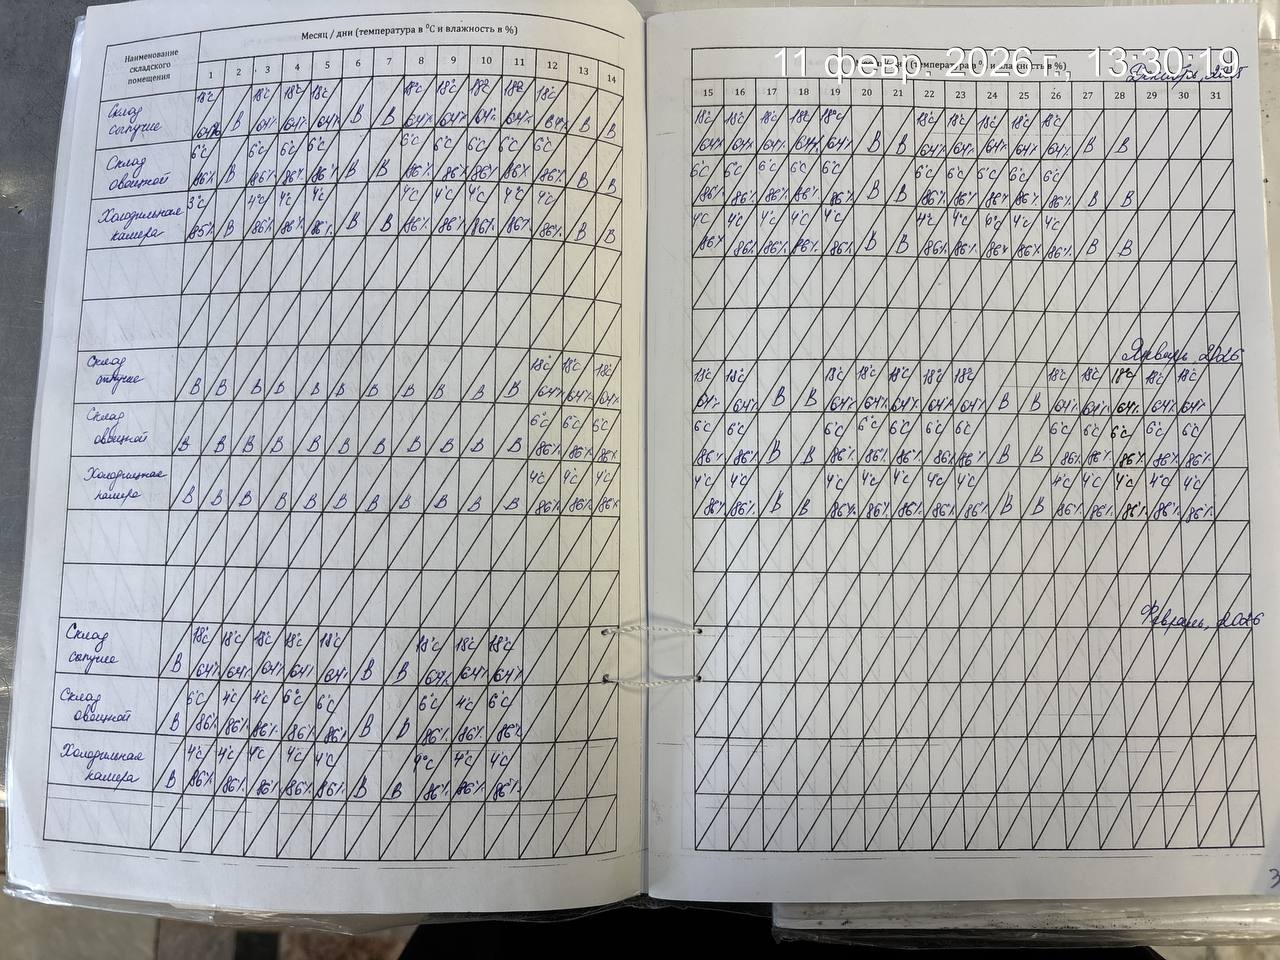 11 февр. 2026 г., 13:30:19
Наименование складского помещения
Месяц / дни (температура в °С и влажность в %)
1 2 3 4 5 6 7 8 9 10 11 12 13 14
Склад сыпучие
18°С 18°С 18°С 18°С 18°С 18°С 18°С 18°С 18°С
64% В 64% 64% 64% В В 64% 64% 64% 64% 64% В В
Склад овощной
6°С 6°С 6°С 6°С 6°С 6°С 6°С 6°С 6°С
86% В 86% 86% 86% В В 86% 86% 86% 86% 86% В В
Холодильная камера
3°С 4°С 4°С 4°С 4°С 4°С 4°С 4°С 4°С
85% В 86% 86% 86% В В 86% 86% 86% 86% 86% В В
Склад
18°С 18°С 18°С
В В В В В В В В В В В 64% 64% 64%
Склад овощной
6°С 6°С 6°С
В В В В В В В В В В В 86% 86% 86%
камера
4°С 4°С 4°С
В В В В В В В В В В В 86% 86% 86%
Склад сыпучие
18°С 18°С 18°С 18°С 18°С 18°С 18°С 18°С
В 64% 64% 64% 64% 64% В В 64% 64% 64%
Склад овощной
6°С 4°С 4°С 6°С 6°С 6°С 4°С 6°С
В 86% 86% 86% 86% 86% В В 86% 86% 86%
Холодильная камера
4°С 4°С 4°С 4°С 4°С 4°С 4°С 4°С
В 86% 86% 86% 86% 86% В В 86% 86% 86%
(температура в °С и влажность в %)
Декабрь, 2025
15 16 17 18 19 20 21 22 23 24 25 26 27 28 29 30 31
18°С 18°С 18°С 18°С 18°С 18°С 18°С 18°С 18°С 18°С
64% 64% 64% 64% 64% В В 64% 64% 64% 64% 64% В В
6°С 6°С 6°С 6°С 6°С 6°С 6°С 6°С 6°С 6°С
86% 86% 86% 86% 86% В В 86% 86% 86% 86% 86% В В
4°С 4°С 4°С 4°С 4°С 4°С 4°С 4°С 4°С
86% 86% 86% 86% 86% В В 86% 86% 86% 86% 86% В В
Январь, 2026
18°С 18°С 18°С 18°С 18°С 18°С 18°С 18°С 18°С 18°С 18°С 18°С
64% 64% В В 64% 64% 64% 64% 64% В В 64% 64% 64% 64% 64%
6°С 6°С 6°С 6°С 6°С 6°С 6°С 6°С 6°С 6°С 6°С 6°С
86% 86% В В 86% 86% 86% 86% 86% В В 86% 86% 86% 86% 86%
4°С 4°С 4°С 4°С 4°С 4°С 4°С 4°С 4°С 4°С 4°С 4°С
86% 86% В В 86% 86% 86% 86% 86% В В 86% 86% 86% 86% 86%
Февраль, 2026
3